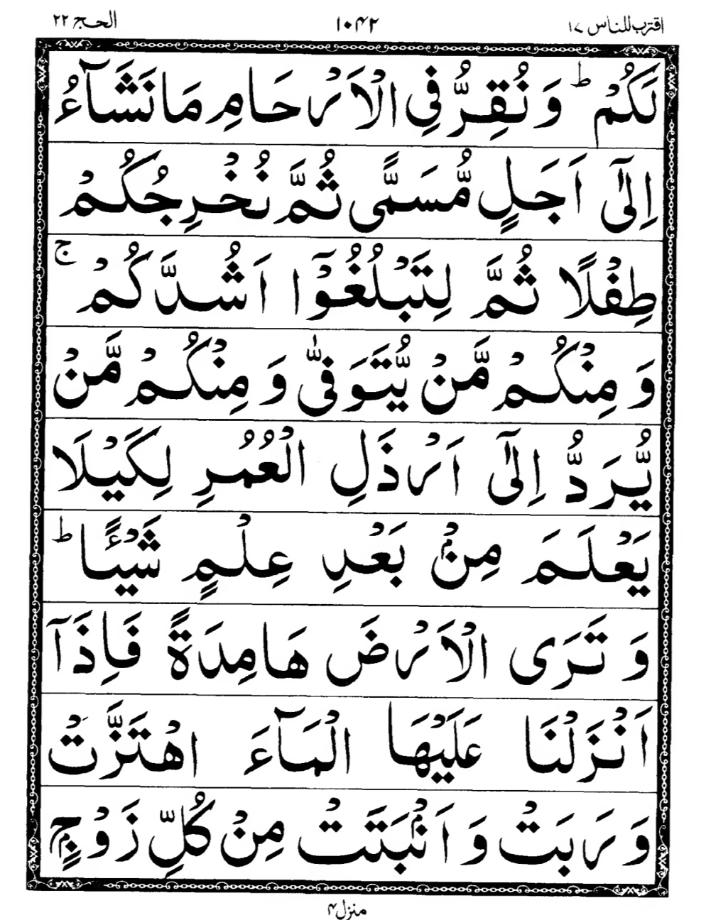 اقترب للناس ۱۷ ۱۰۴۲ الحج ۲۲
لَكُمْ ؕ وَ نُقِرُّ فِی الْاَرْحَامِ مَا نَشَآءُ
اِلٰۤی اَجَلٍ مُّسَمًّی ثُمَّ نُخْرِجُكُمْ
طِفْلًا ثُمَّ لِتَبْلُغُوْۤا اَشُدَّكُمْ ۚ
وَ مِنْكُمْ مَّنْ یُّتَوَفّٰی وَ مِنْكُمْ مَّنْ
یُّرَدُّ اِلٰۤی اَرْذَلِ الْعُمُرِ لِكَیْلَا
یَعْلَمَ مِنْۢ بَعْدِ عِلْمٍ شَیْـًٔا ؕ
وَ تَرَی الْاَرْضَ هَامِدَةً فَاِذَاۤ
اَنْزَلْنَا عَلَیْهَا الْمَآءَ اهْتَزَّتْ
وَ رَبَتْ وَ اَنْۢبَتَتْ مِنْ كُلِّ زَوْجٍۭ
منزل ۴